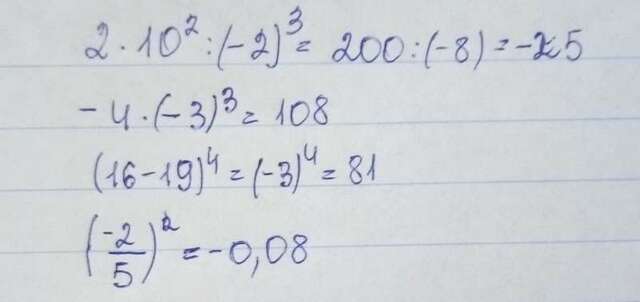 2 · 10² : (-2)³ = 200 : (-8) = -25
-4 · (-3)³ = 108
(16 - 19)⁴ = (-3)⁴ = 81
(-2/5)² = -0,08